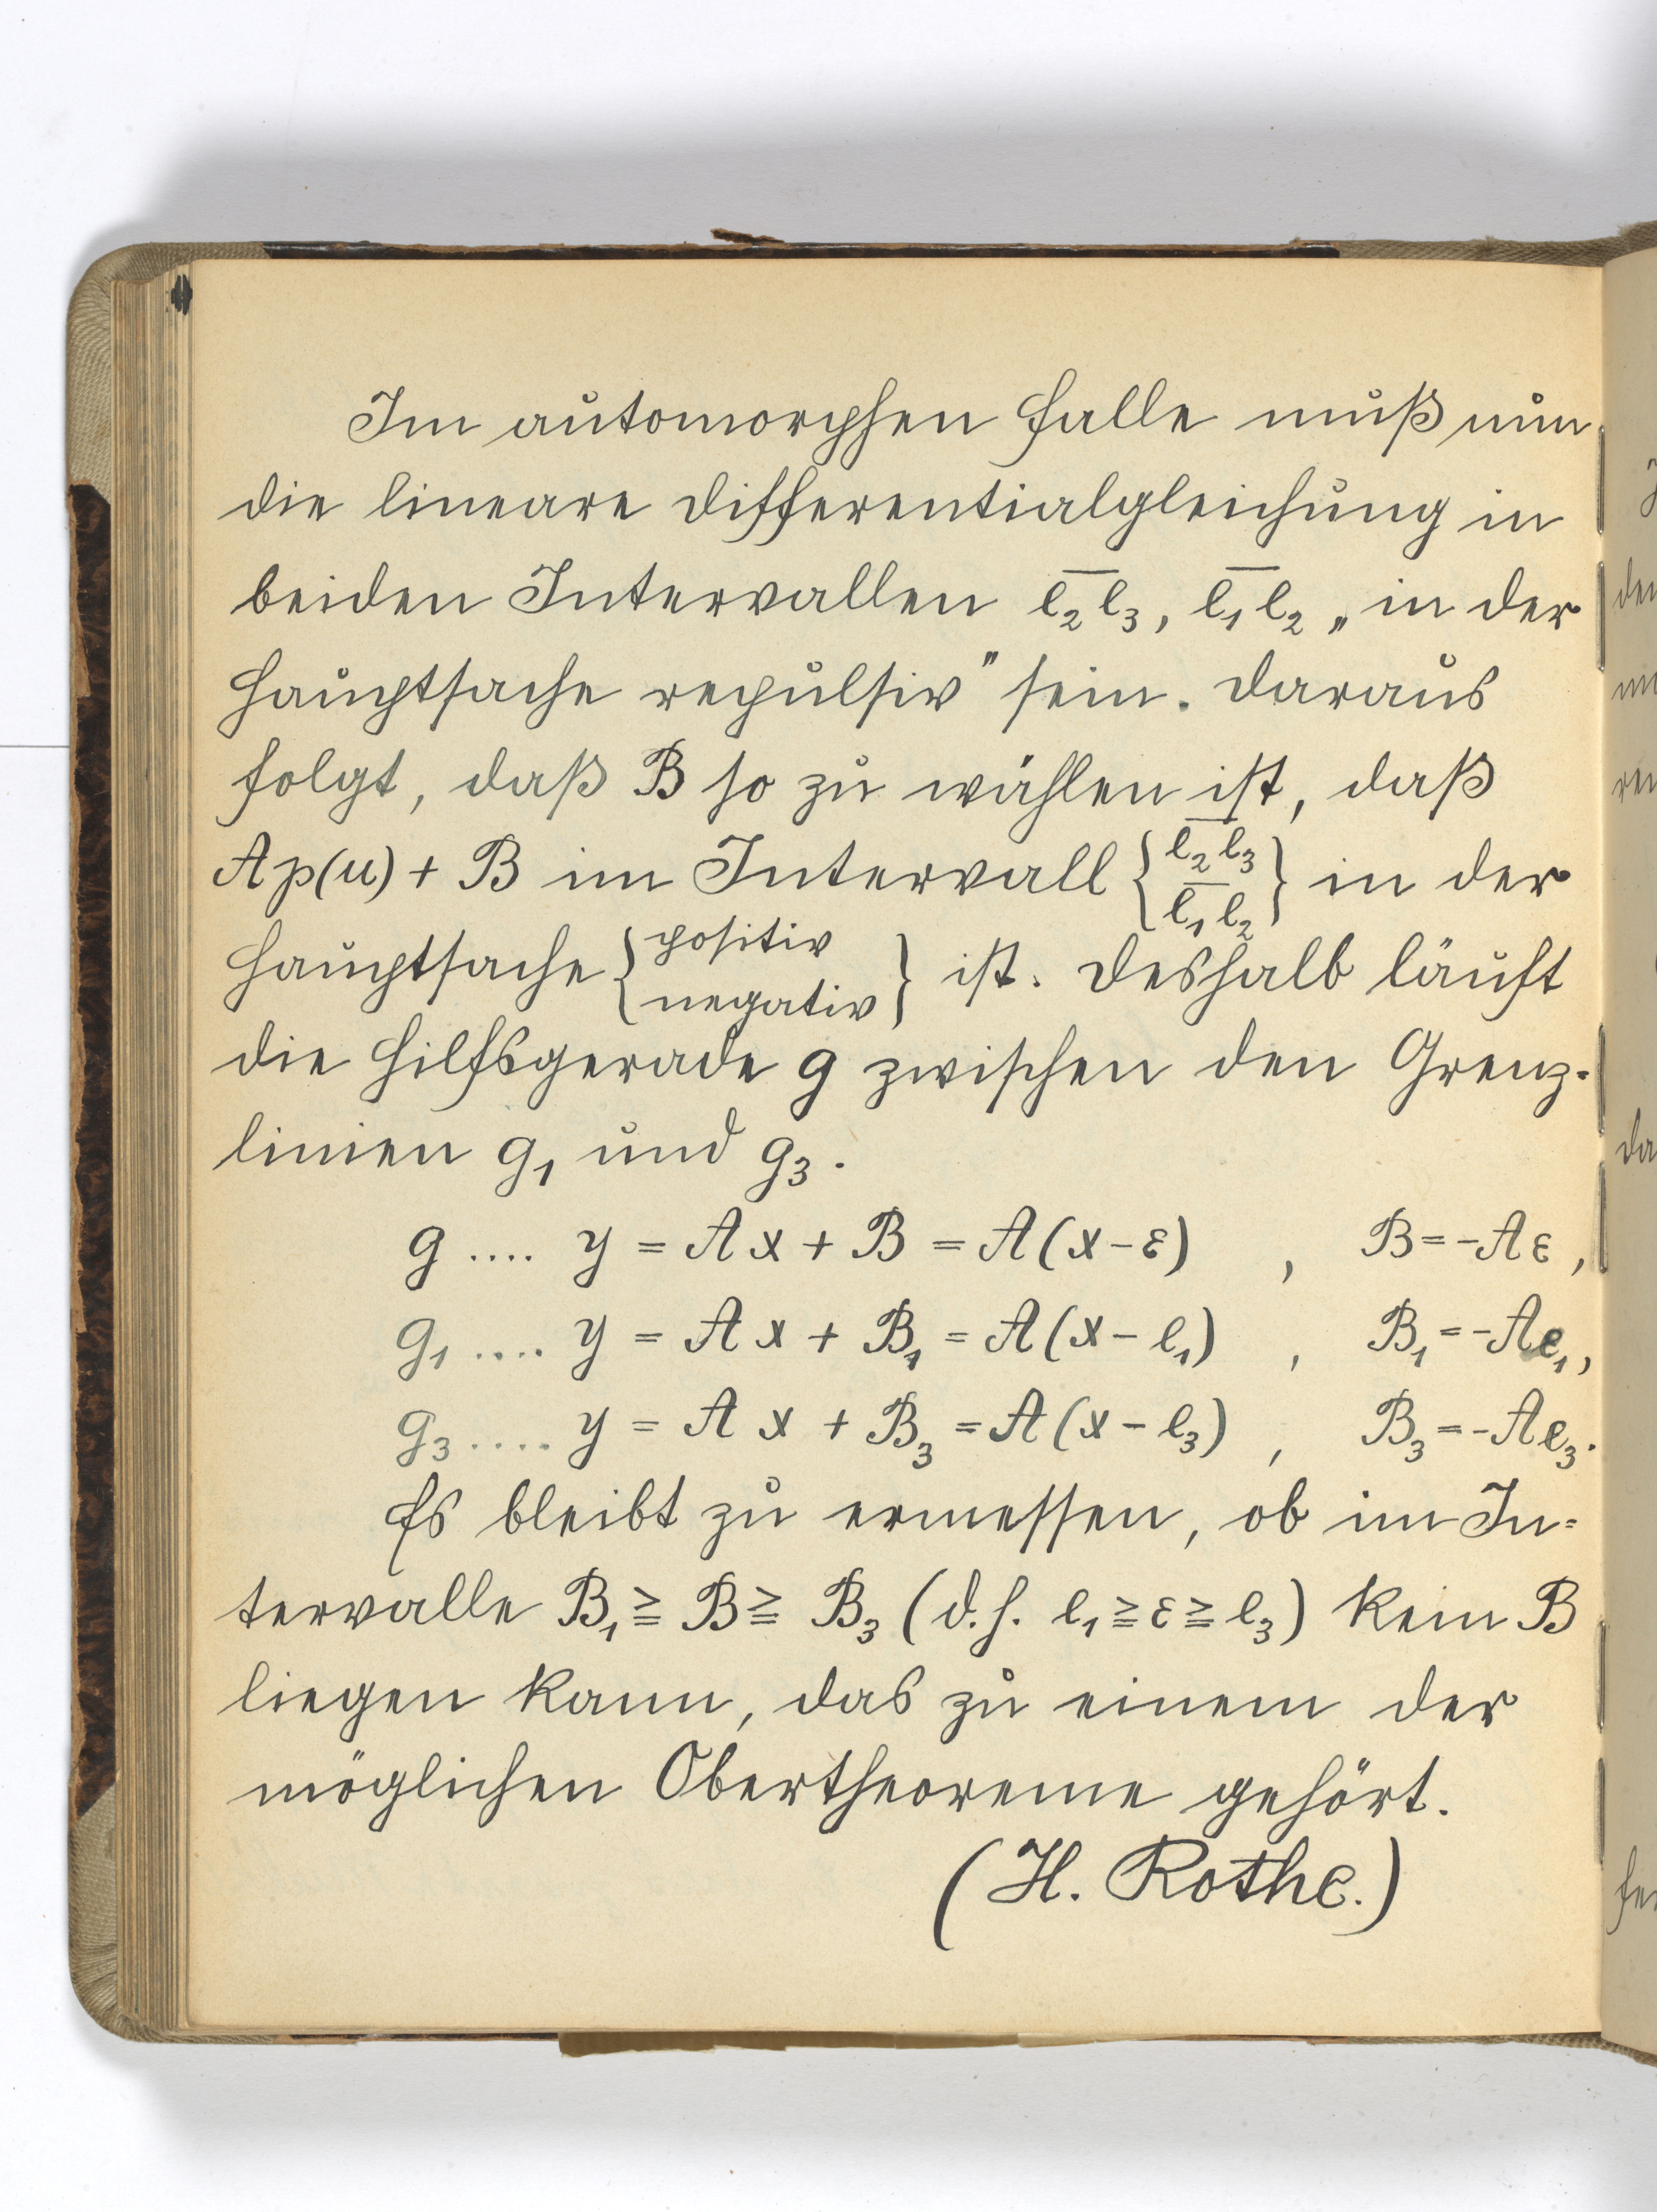 Im automorphen Falle muß nun
die lineare Differentialgleichung in
beiden Intervallen e̅₂e̅₃, e̅₁e̅₂ „in der
Hauptsache repulsiv" sein. Daraus
folgt, daß B so zu wählen ist, daß
A p(u) + B im Intervall {e̅₂e̅₃ / e̅₁e̅₂} in der
Hauptsache {positiv / negativ} ist. Deshalb läuft
die Hilfsgerade g zwischen den Grenz-
linien g₁ und g₃.
g .... y = Ax + B = A(x-ε) , B = -Aε,
g₁ .... y = Ax + B₁ = A(x-e₁) , B₁ = -Ae₁,
g₃ ..... y = Ax + B₃ = A(x-e₃) , B₃ = -Ae₃.
Es bleibt zu ermessen, ob im In=
tervalle B₁ ≧ B ≧ B₃ (d.h. e₁ ≧ ε ≧ e₃) kein B
liegen kann, das zu einem der
möglichen Obertheoreme gehört.
(H. Rothe.)